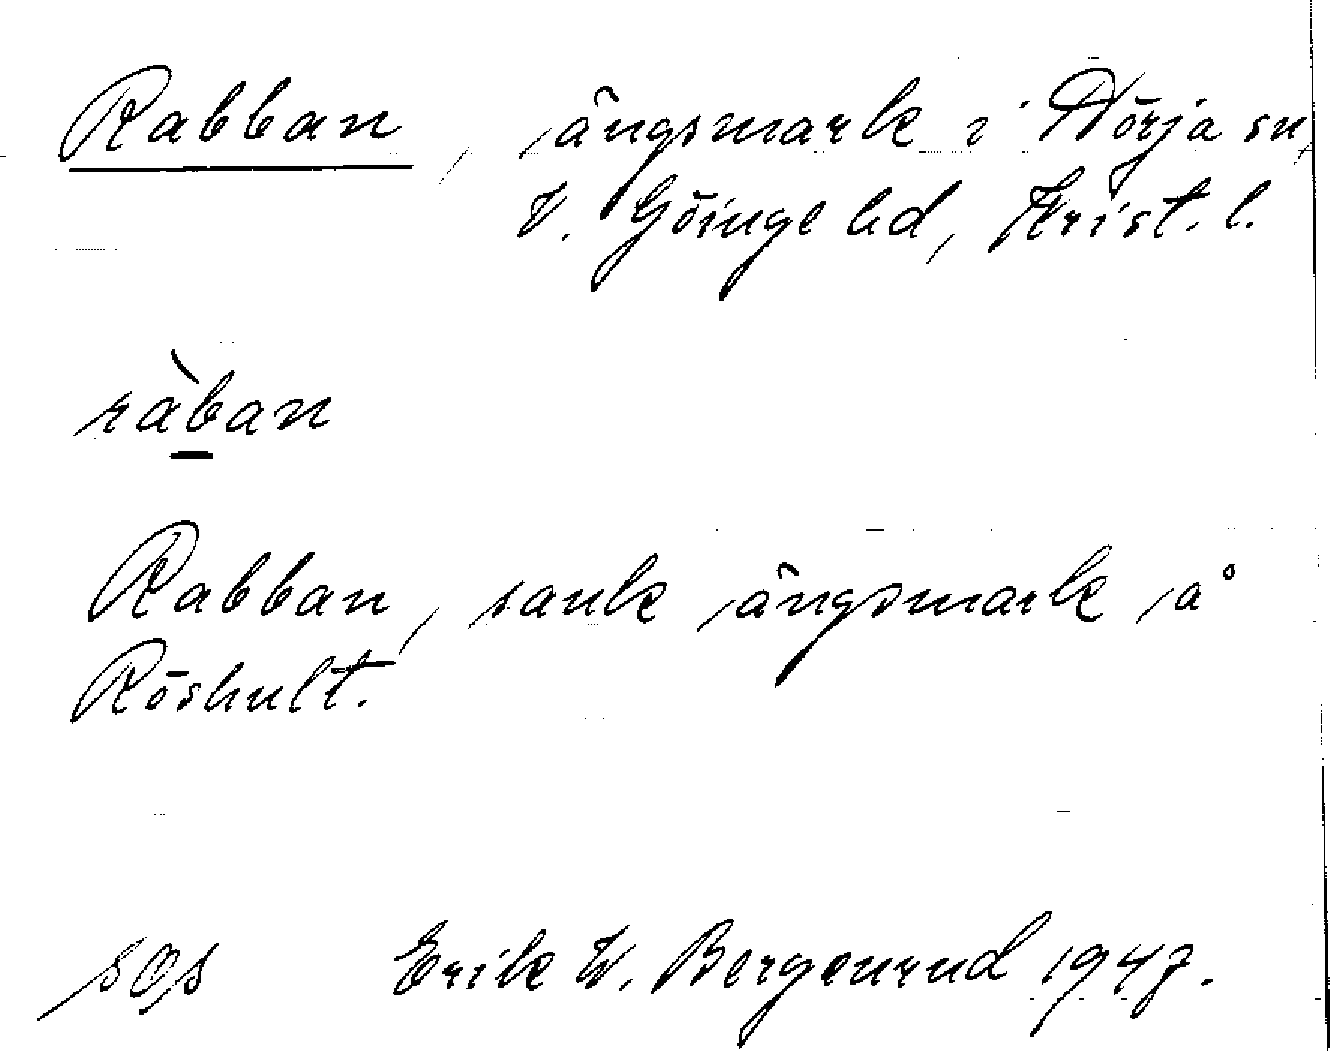 Rabban, ängsmark i Nörja sn,
V. Göinge hd, Krist. l.
ràban
Rabban, sank ängsmark å
Röshult.
sos Erik W. Bergenrud 1947.